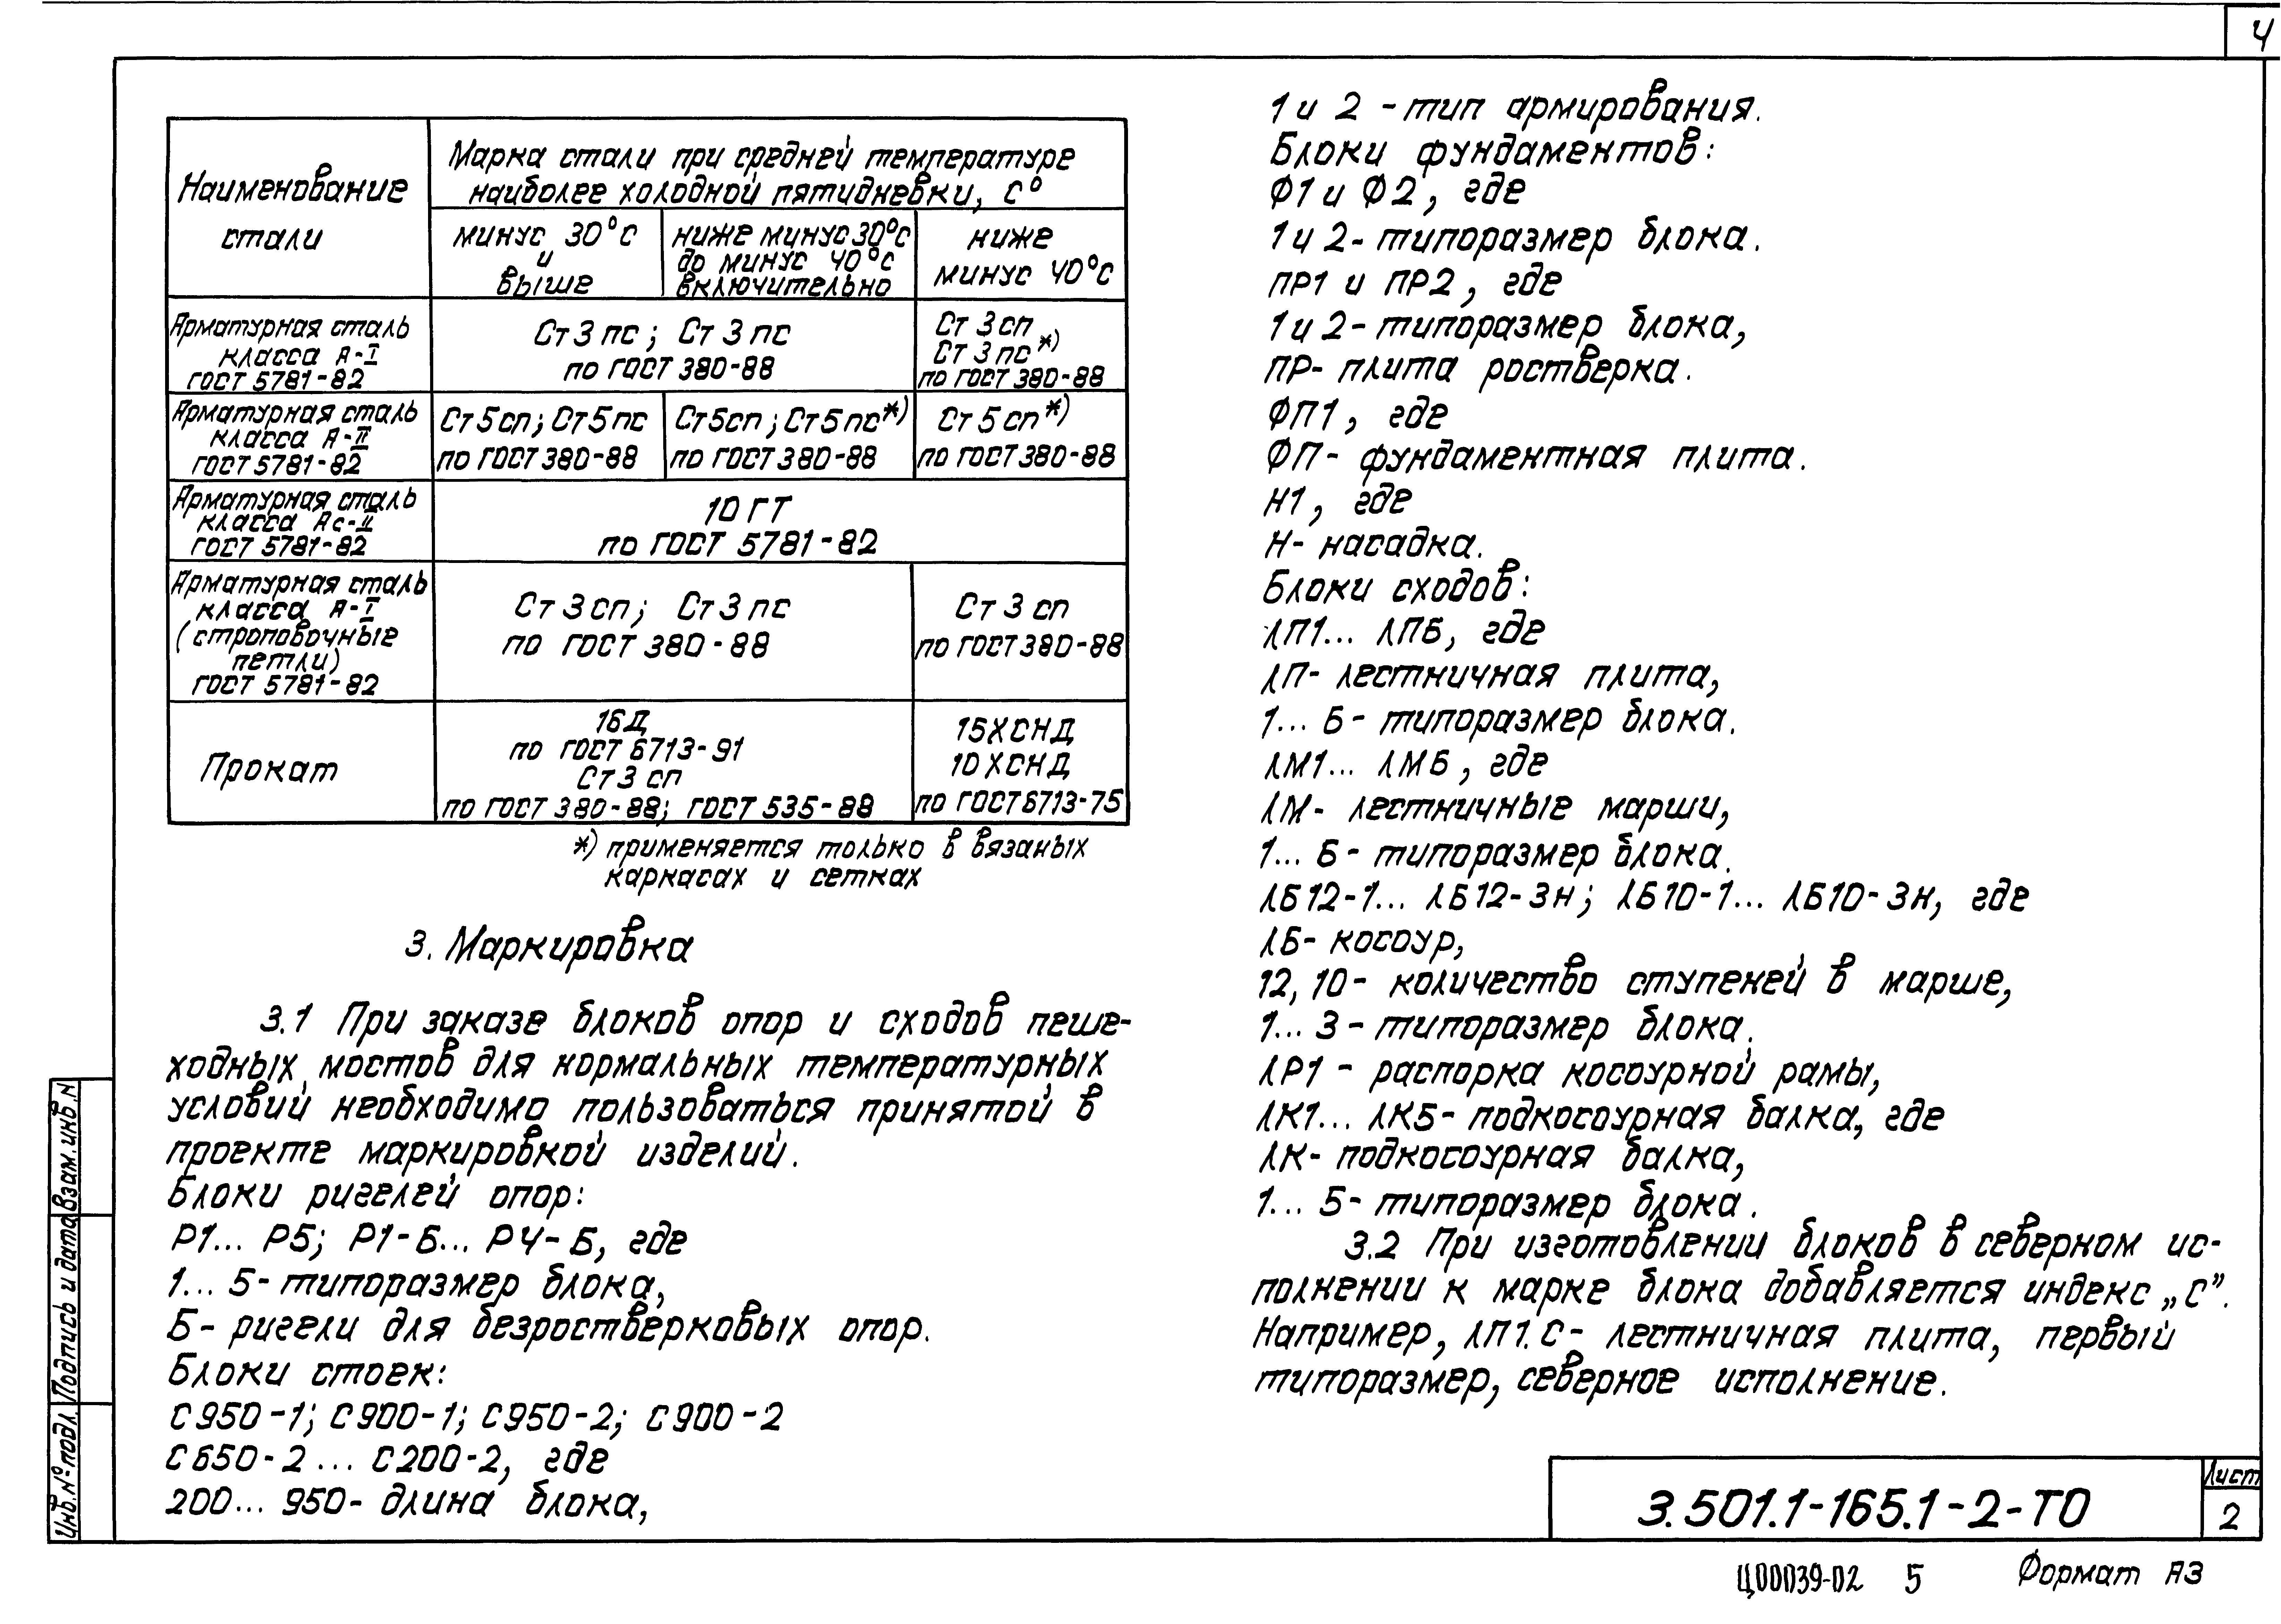 4
Наименование
стали
Марка стали при средней температуре
наиболее холодной пятидневки, С°
минус 30°С
и
выше
ниже минус 30°С
до минус 40°С
включительно
ниже
минус 40°С
Арматурная сталь
класса А-I
ГОСТ 5781-82
Ст 3 пс; Ст 3 пс
по ГОСТ 380-88
Ст 3 сп
Ст 3 пс *)
по ГОСТ 380-88
Арматурная сталь
класса А-II
ГОСТ 5781-82
Ст5сп; Ст5пс
по ГОСТ 380-88
Ст5сп; Ст5пс*)
по ГОСТ 380-88
Ст 5 сп*)
по ГОСТ 380-88
Арматурная сталь
класса Ас-II
ГОСТ 5781-82
10 ГТ
по ГОСТ 5781-82
Арматурная сталь
класса А-I
(строповочные
петли)
ГОСТ 5781-82
Ст 3 сп; Ст 3 пс
по ГОСТ 380-88
Ст 3 сп
по ГОСТ 380-88
Прокат
16Д
по ГОСТ 6713-91
Ст 3 сп
по ГОСТ 380-88; ГОСТ 535-88
15ХСНД
10ХСНД
по ГОСТ 6713-75
*) применяется только в вязаных
каркасах и сетках
3. Маркировка
3.1 При заказе блоков опор и сходов пеше-
ходных мостов для нормальных температурных
условий необходимо пользоваться принятой в
проекте маркировкой изделий.
Блоки ригелей опор:
Р1... Р5; Р1-Б... Р4-Б, где
1... 5- типоразмер блока,
Б- ригели для безростверковых опор.
Блоки стоек:
С950-1; С900-1; С950-2; С900-2
С650-2... С200-2, где
200... 950- длина блока,
1 и 2 - тип армирования.
Блоки фундаментов:
Ф1 и Ф2, где
1 и 2- типоразмер блока.
ПР1 и ПР2, где
1 и 2- типоразмер блока,
ПР- плита ростверка.
ФП1, где
ФП- фундаментная плита.
Н1, где
Н- насадка.
Блоки сходов:
ЛП1... ЛП6, где
ЛП- лестничная плита,
1... 6- типоразмер блока.
ЛМ1... ЛМ6, где
ЛМ- лестничные марши,
1... 6- типоразмер блока.
ЛБ12-1... ЛБ12-3н; ЛБ10-1... ЛБ10-3н, где
ЛБ- косоур,
12, 10- количество ступеней в марше,
1... 3- типоразмер блока.
ЛР1 - распорка косоурной рамы,
ЛК1... ЛК5- подкосоурная балка, где
ЛК- подкосоурная балка,
1... 5- типоразмер блока.
3.2 При изготовлении блоков в северном ис-
полнении к марке блока добавляется индекс „С”.
Например, ЛП1.С- лестничная плита, первый
типоразмер, северное исполнение.
Инв.№ подл. Подпись и дата Взам.инв.N
3.501.1-165.1-2-ТО
Лист
2
Ц00039-02 5 Формат А3